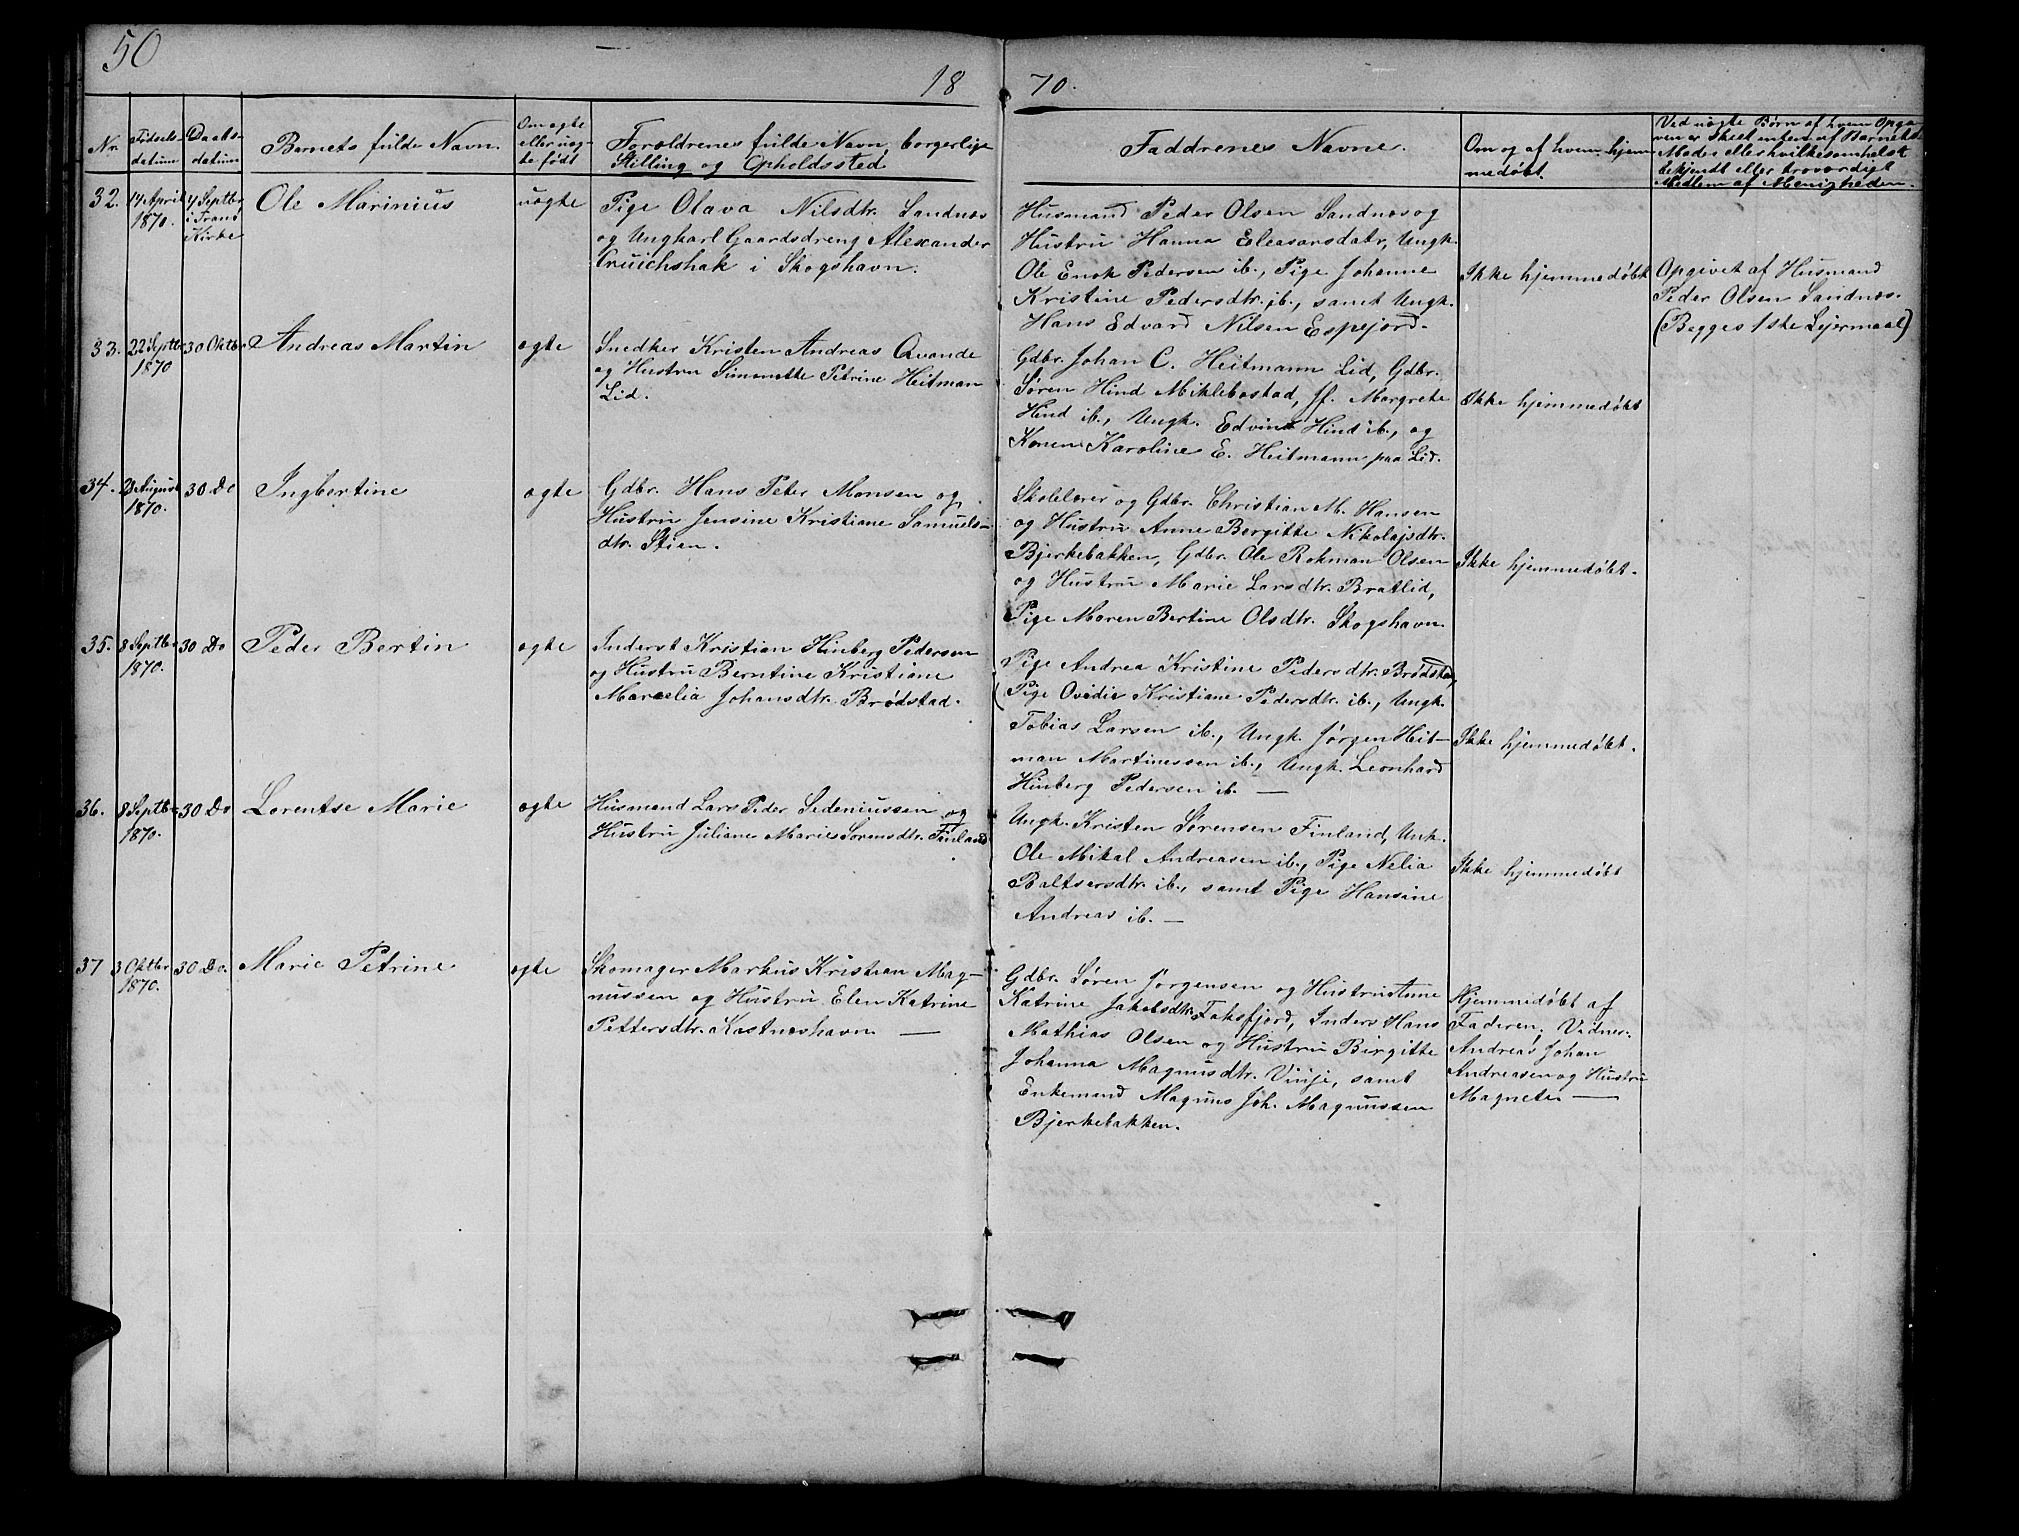 50
18 70.
Nr. Fødsels- datum Daabs- datum Barnets fulde Navn. Om ægte eller uæg- te født Forældrenes fulde Navn, borgerlige Stilling og Opholdssted Faddrenes Navne. Om og af hvem hjem- medøbt. Ved uægte Børn af hvem Opga- ven er skeet enten af Barnets Moder eller hvilketsomhelst bekjendt eller troværdigt Medlem af Menigheden.
32. 14 April 1870. 4 Septbr i Tranø Kirke
Ole Marinius
uægte
Pige Olava Nilsdtr. Sandnæs
og Ungkarl Gaardsdreng Alexander
Cruichshak i Skogshavn.
Husmand Peder Olsen Sandnæs og
Hustru Hanna Eleasarsdatr, Ungk.
Ole Enok Pedersen ib., Pige Johanne
Kristine Pedersdtr. ib., samt Ungk.
Hans Edvard Nilsen Espejord.
Ikke hjemmedøbt
Opgivet af Husmand
Peder Olsen Sandnæs.
(Begges 1ste Lejermaal)
33. 22 Septbr 1870 30 Oktbr
Andreas Martin
ægte
Snedker Kristen Andreas Qvande
og Hustru Simonette Petrine Heitman
Lid.
Gdbr. Johan C. Heitmann Lid, Gdbr.
Søren Hind Miklebostad, Jf. Margrete
Hind ib., Ungk. Edvind Hind ib., og
Konen Karoline E. Heitmann paa Lid.
Ikke hjemmedøbt
34. August 1870. 30 Do
Ingbertine
ægte
Gdbr. Hans Peter Monsen og
Hustru Jensine Kristiane Samuels-
dtr. Stien.
Skolelærer og Gdbr. Christian M. Hansen
og Hustru Anne Bergitte Nikolajsdtr.
Bjerkebakken, Gdbr. Ole Rokman Olsen
og Hustru Marie Larsdtr. Bratlid,
Pige Maren Bertine Olsdtr. Skogshavn.
Ikke hjemmedøbt.
35. 8 Septbr 1870. 30 Do
Peder Bertin
ægte
Inderst Kristian Hinberg Pedersen
og Hustru Berntine Kristiane
Marcelia Johansdtr. Brødstad.
Pige Andrea Kristine Pedersdtr. Brødstad,
Pige Ovidie Kristiane Pedersdtr. ib., Ungk.
Tobias Larsen ib., Ungk. Jørgen Heit-
man Martinessen ib., Ungk. Leonhard
Hinberg Pedersen ib. —
Ikke hjemmedøbt.
36. 8 Septbr 1870. 30 Do
Lorentse Marie
ægte
Husmand Lars Peder Sedeniussen og
Hustru Juliane Marie Sørensdtr. Finland
Ungk. Kristen Sørensen Finland, Unk.
Ole Mikal Andreasen ib., Pige Nelia
Baltsersdtr. ib., samt Pige Hansine
Andreas ib. —
Ikke hjemmedøbt
37 3 Oktbr 1870. 30 Do.
Marie Petrine
ægte
Skomager Markus Kristian Mag-
nussen og Hustru Elen Katrine
Pettersdtr. Kastneshavn —
Gdbr. Søren Jørgensen og Hustru Anne
Katrine Jakobsdtr. Faksfjord, Inders Hans
Mathias Olsen og Hustru Birgitte
Johanna Magnusdtr. Vinje, samt
Enkemand Magnus Joh. Magnussen
Bjerkebakken.
Hjemmedøbt af
Faderen. Vidner
Andreas Johan
Andreasen og Hustru
Magnete —